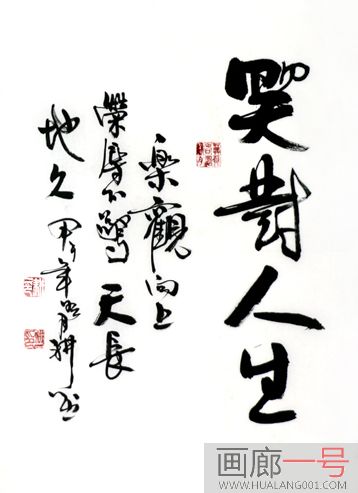 笑對人生
樂觀向上
榮辱不驚天長
地久甲午年
画廊一号
WWW.HUALANG001.COM